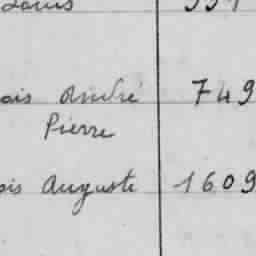 Louis
ois André 749
Pierre
ois Auguste 1609